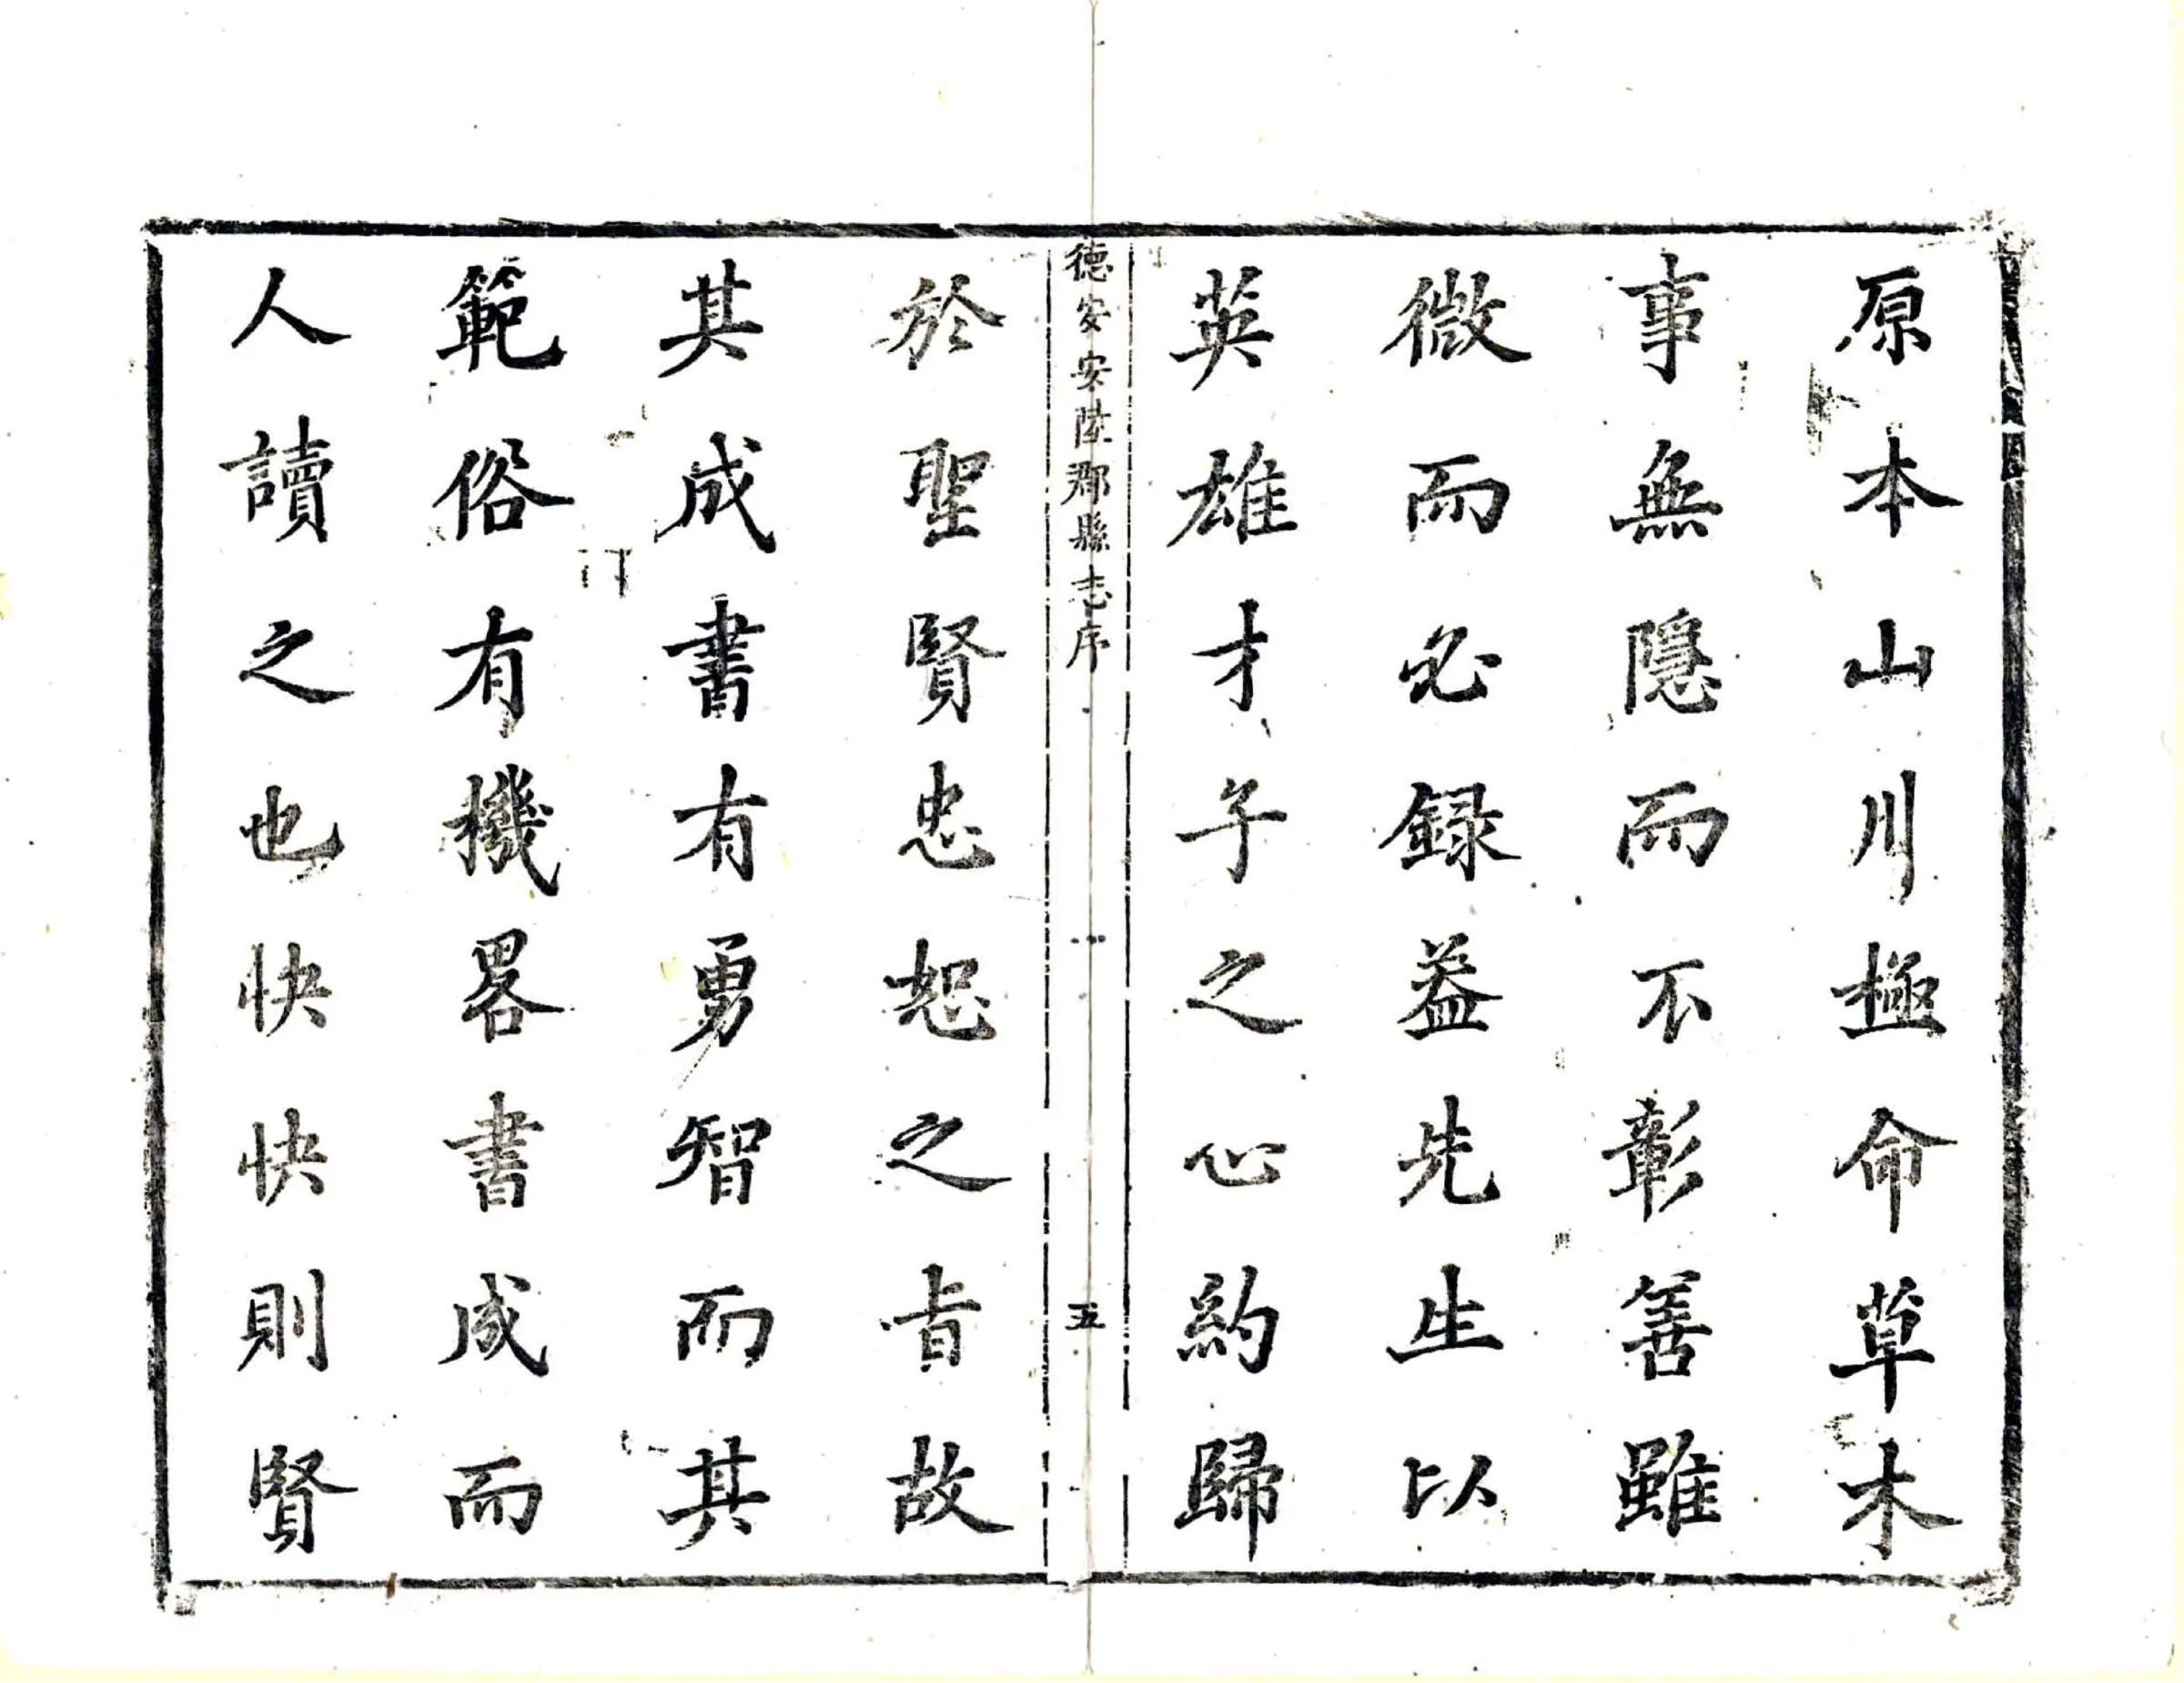 原本山川極命草木
事無隱而不彰善雖
微而必録葢先生以
英雄才子之心約歸
德安安陸郡縣志序
五
於聖賢忠恕之㫖故
其成書有勇智而其
範俗有機畧書成而
人讀之也快快則賢